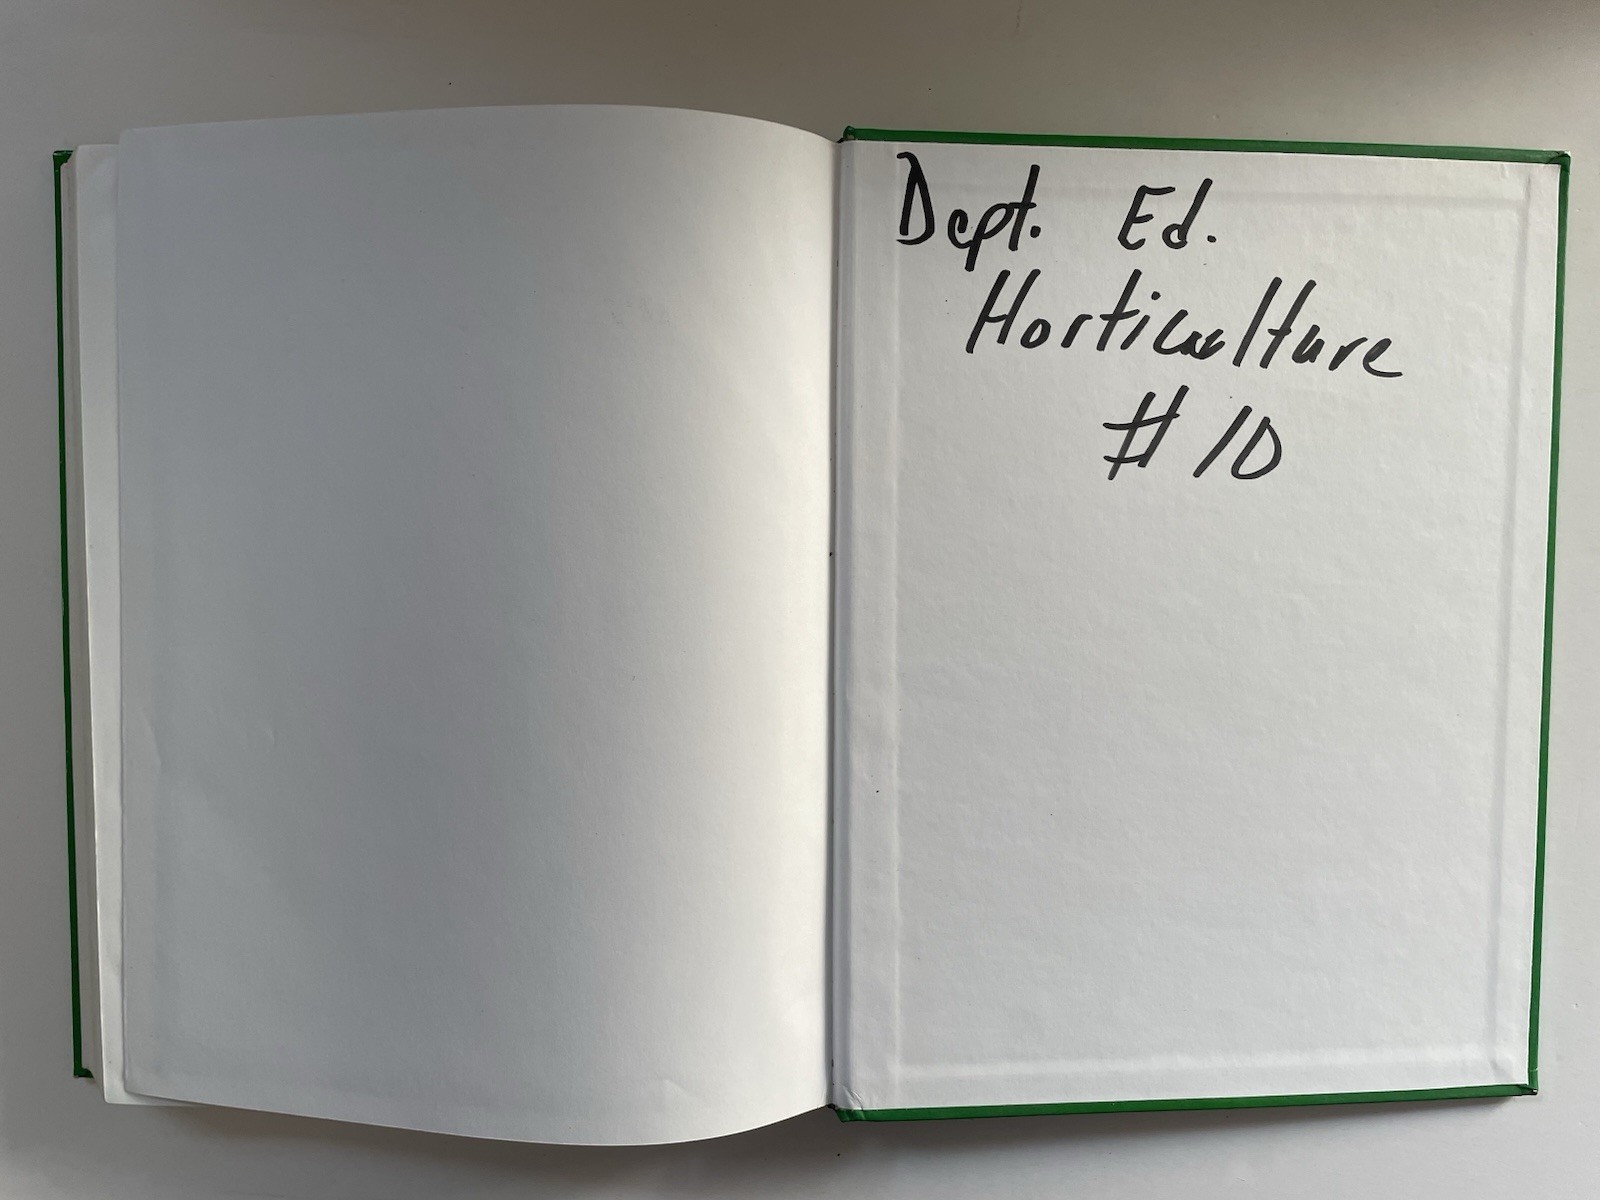 Dept. Ed.
Horticulture
# 10